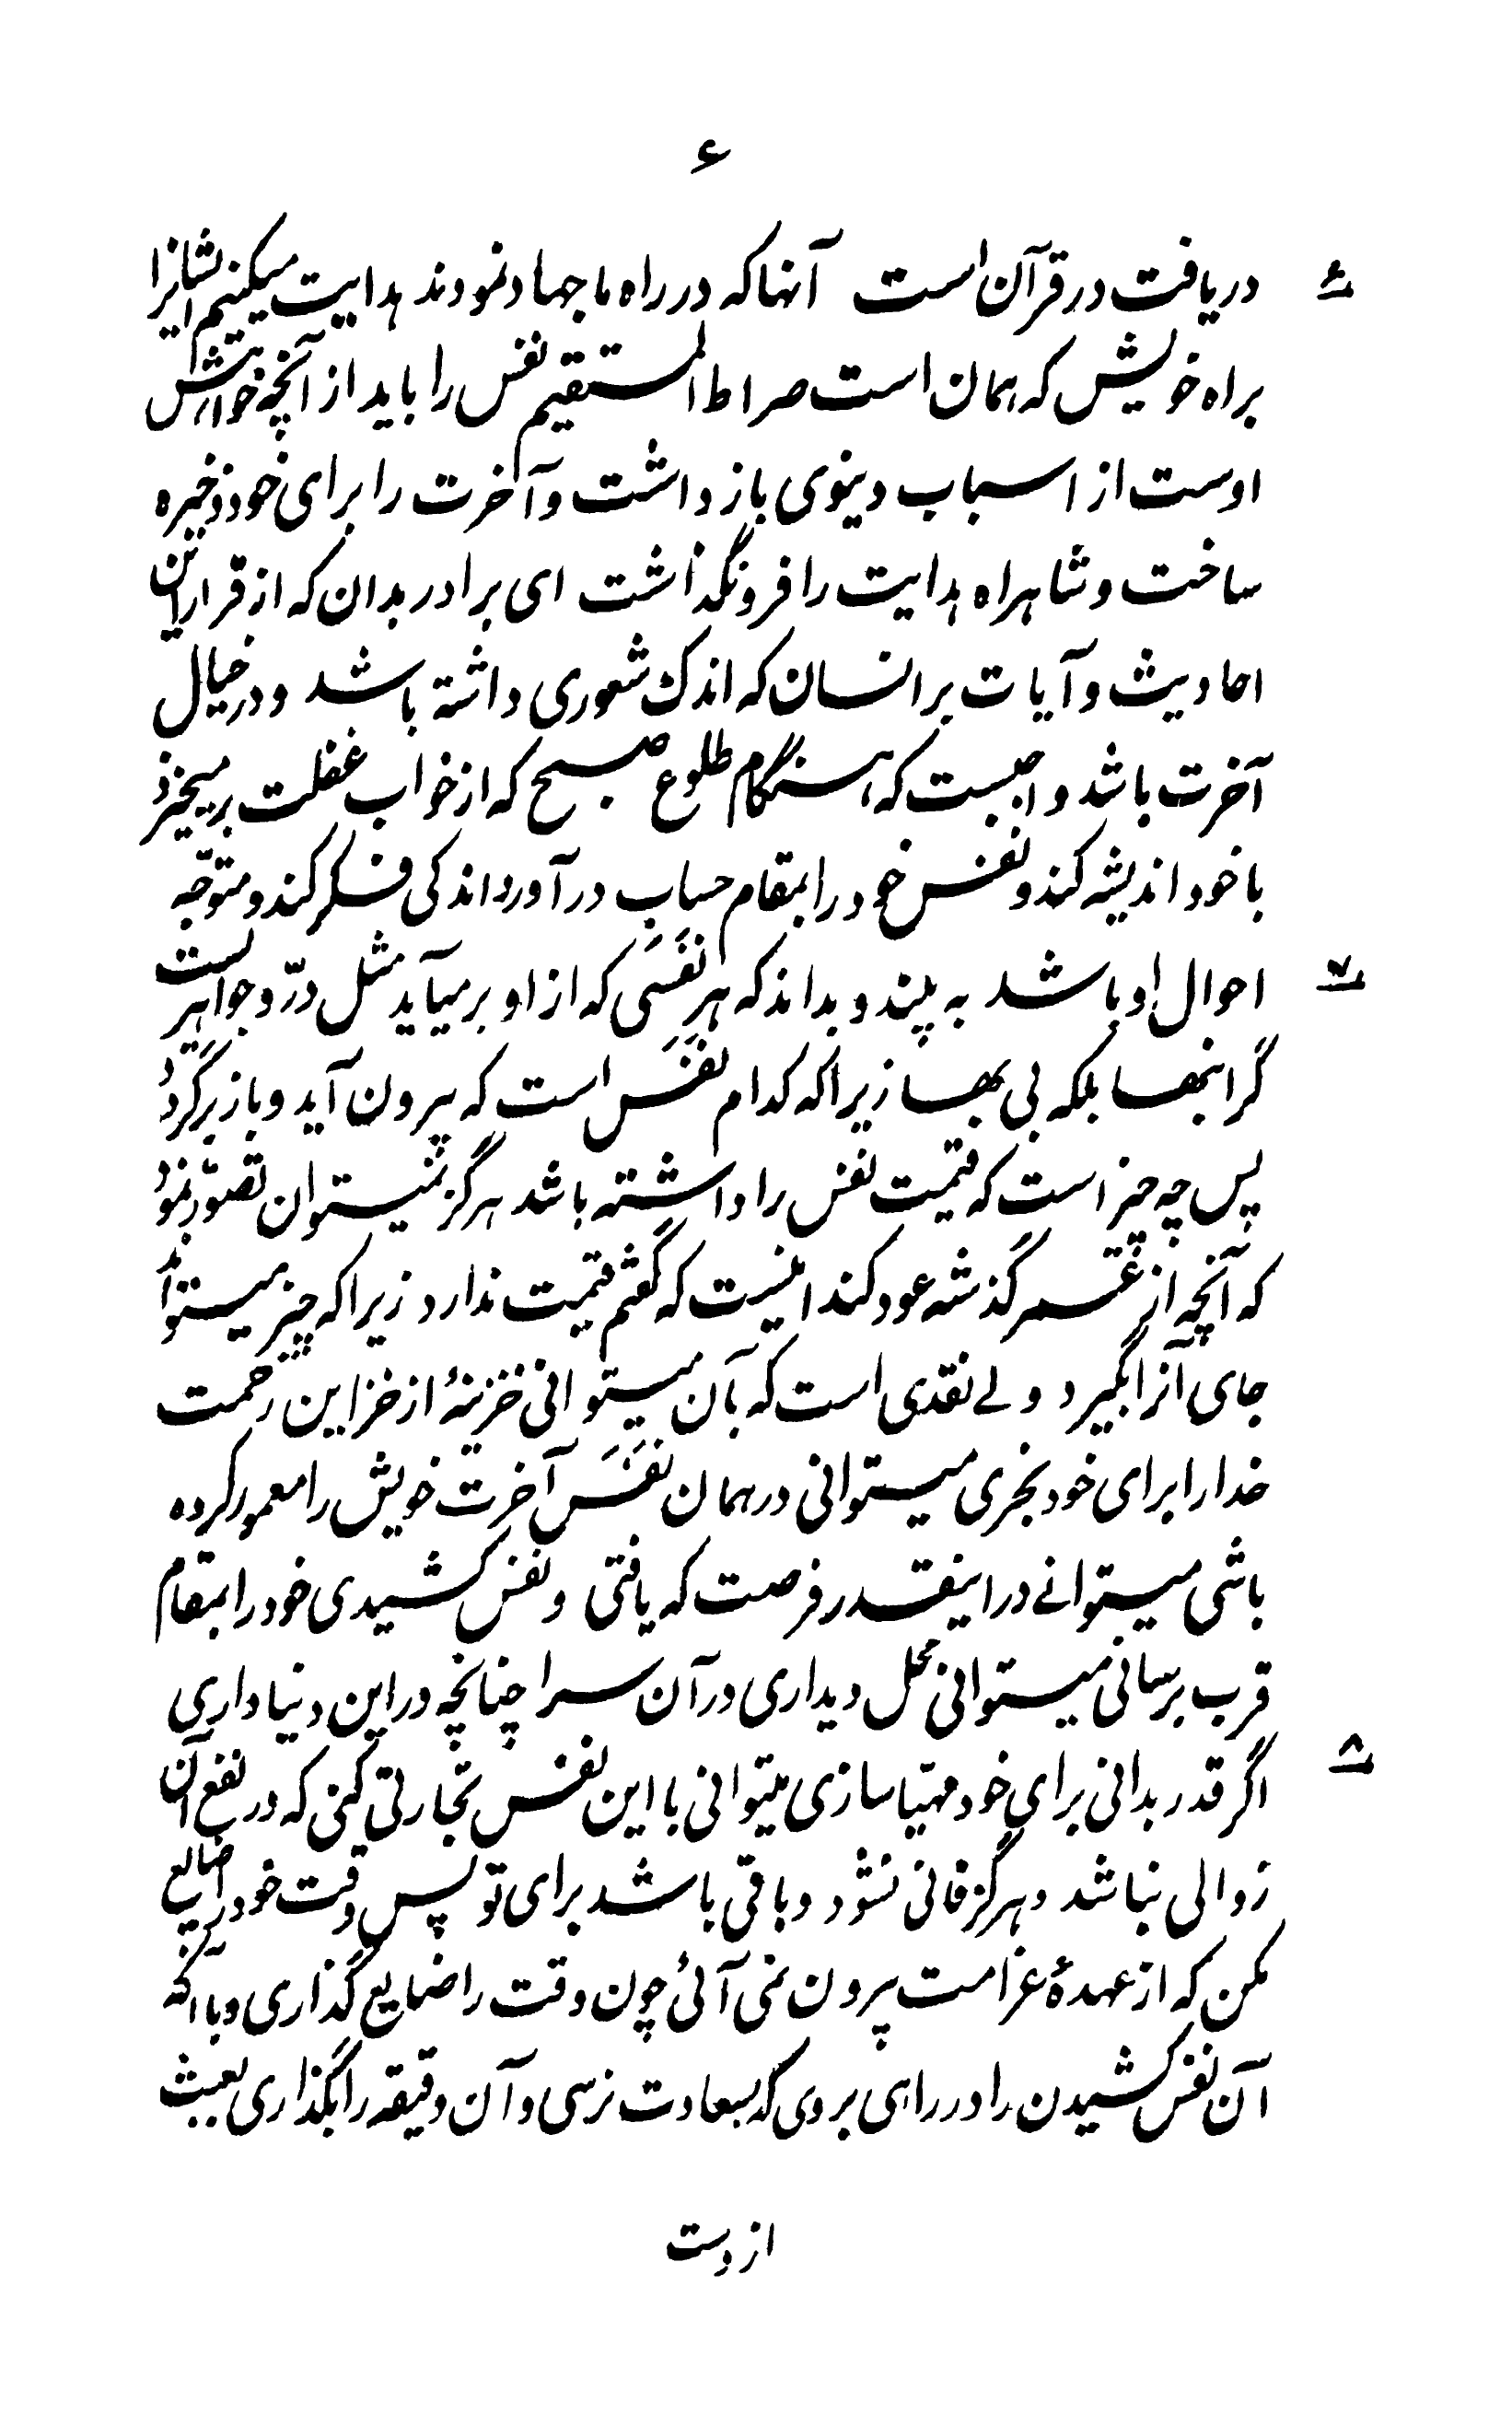 ۶
دریافت در قرآن است آنها که در راه ما جهاد نمودند هدایت میکنیم ایشانرا ۶
براه خویش که همان است صراط المستقیم نفس را باید از آنچه خواهش
اوست از اسباب دینوی باز داشت و آخرت را برای خود ذخیره
ساخت و شاهراه هدایت را فرونگذاشت ای برادر بدان که از قرار این
احادیث و آیات بر انسان که اندک شعوری داشته باشد و در خیال
آخرت باشد واجبست که هنگام طلوع صبح که از خواب غفلت برمیخیزد
با خود اندیشه کند و نفس خود را بمقام حساب در آورد اندکی فکر کند و متوجّه
احوال او باشد به بیند و بداند که هر نَفَسَی که از او بر میآید مثل درّ و جواهریست ۷
گرانبها بلکه بی بها زیرا که کدام نَفَس است که بیرون آید و باز برگردد
پس چه چیز است که قیمت نفس را داشته باشد هرگز نمیتوان تصوّر نمود
که آنچه از عمر گذشته عود کند اینست که گفتم قیمت ندارد زیرا که چیز میتواند
جای آنرا بگیرد ولے نقدی است که بآن میتوانی خزینهٔ از خزاین رحمت
خدا را برای خود بخری میتوانی در همان نَفَس آخرت خویش را معمور کرده
باشی میتوانے در اینقدر فرصت که یافتی و نفس کشیدی خود را بمقام
قرب برسانی میتوانی محل دیداری در آن سرا چنانچه در این دنیا داری
اگر قدر بدانی برای خود مهیّا سازی میتوانی با این نفس تجارتی کنی که در نفع آن ۸
زوالی نباشد و هرگز فانی نشود و باقی باشد برای تو پس وقت خود را ضایع
مکن که از عهدهٔ غرامت بیرون نمی آئی چون وقت را ضایع گذاری و با آنکه
آن نفس کشیدن را در راهی بروی که بسعادت نرسی و آن دقیقه را بگذاری بعبث
از دست